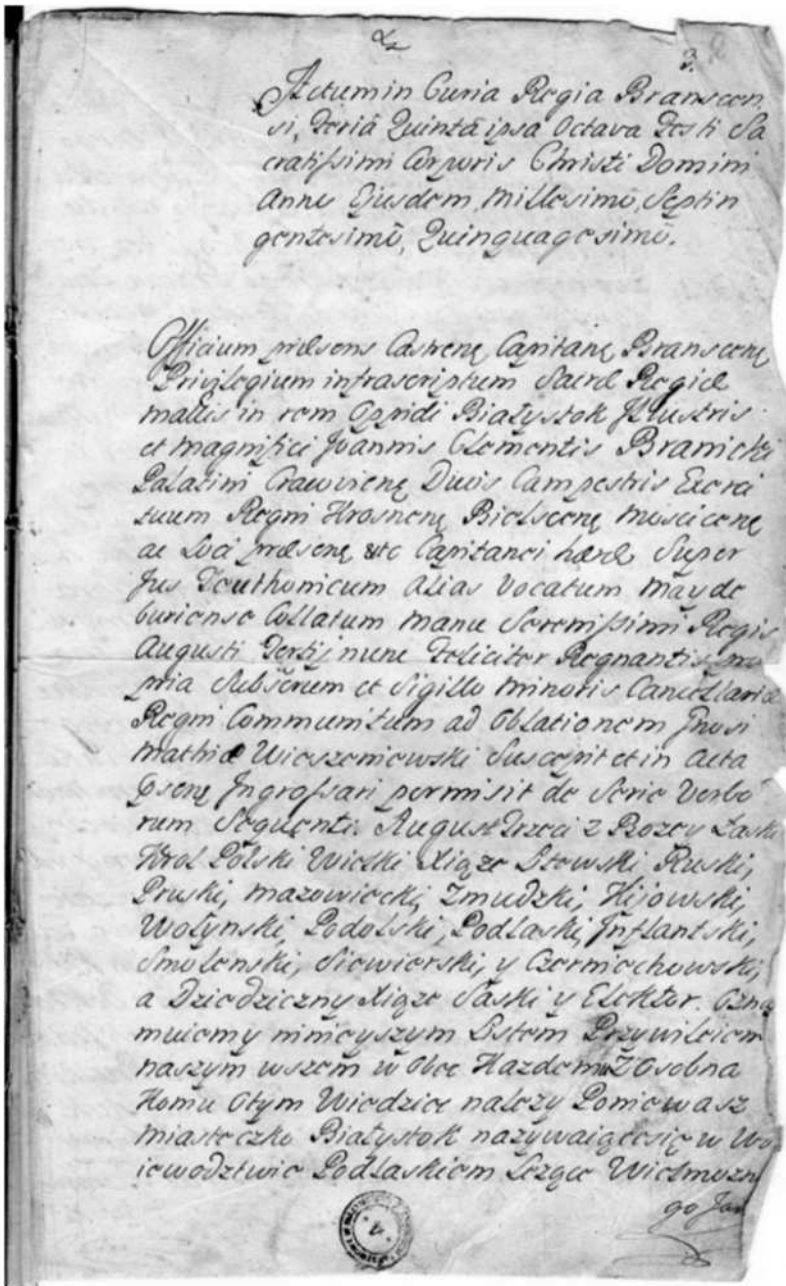 3.
Actum in Curia Regia Branscen,
si, Feria Quinta ipsa Octava Festi Sa
cratissimi Corporis Christi Domini
Anno Ejusdem, Millesimo, Septin
gentesimo, Quinquagesimo.
Officium præsens Castrenę Capitanę Branscenę
Privilegium infrascriptum Sacræ Regiæ
Mattis in rem Oppidi Białystok Illustris
et Magnifici Joannis Clementis Branicki
Palatini Cracovienę Ducis Campestris Exerci
tuum Regni Krosnenę Bielscenę Moscicenę
ac Loci præsenę etc Capitanei hæræ Super
Jus Teuthonicum Alias Vocatum Mayde
buriense Collatum Manu Serenissimi Regis
Augusti Tertij nunc Feliciter Regnantis pro
pria Subscrum et Sigillo Minoris Cancellariæ
Regni Communitum ad Oblationem Gnosi
Mathiæ Wieszeniewski Suscepit et in Acta
Ingrossari permisit de Serie Verbo
rum Sequenti. August Trzeci z Bozey Łaski
Krol Polski Wielki Xiąze Litewski, Ruski,
Pruski, Mazowiecki, Zmudzki, Kijowski,
Wołynski, Podolski, Podlaski, Inflantski,
Smolenski, Siewierski, y Czerniechowski,
a Dziedziczny Xiąze Saski y Elektor. Ozna
muiemy ninieyszym Listem Przywileiem
naszym wszem w Obec Kazdemu Z Osobna
Komu Otym Wiedziec nalezy Poniewasz
Miasteczko Białystok nazywaiącesię w Wo
iewodztwie Podlaskiem Lezące Wielmozne
go Jan